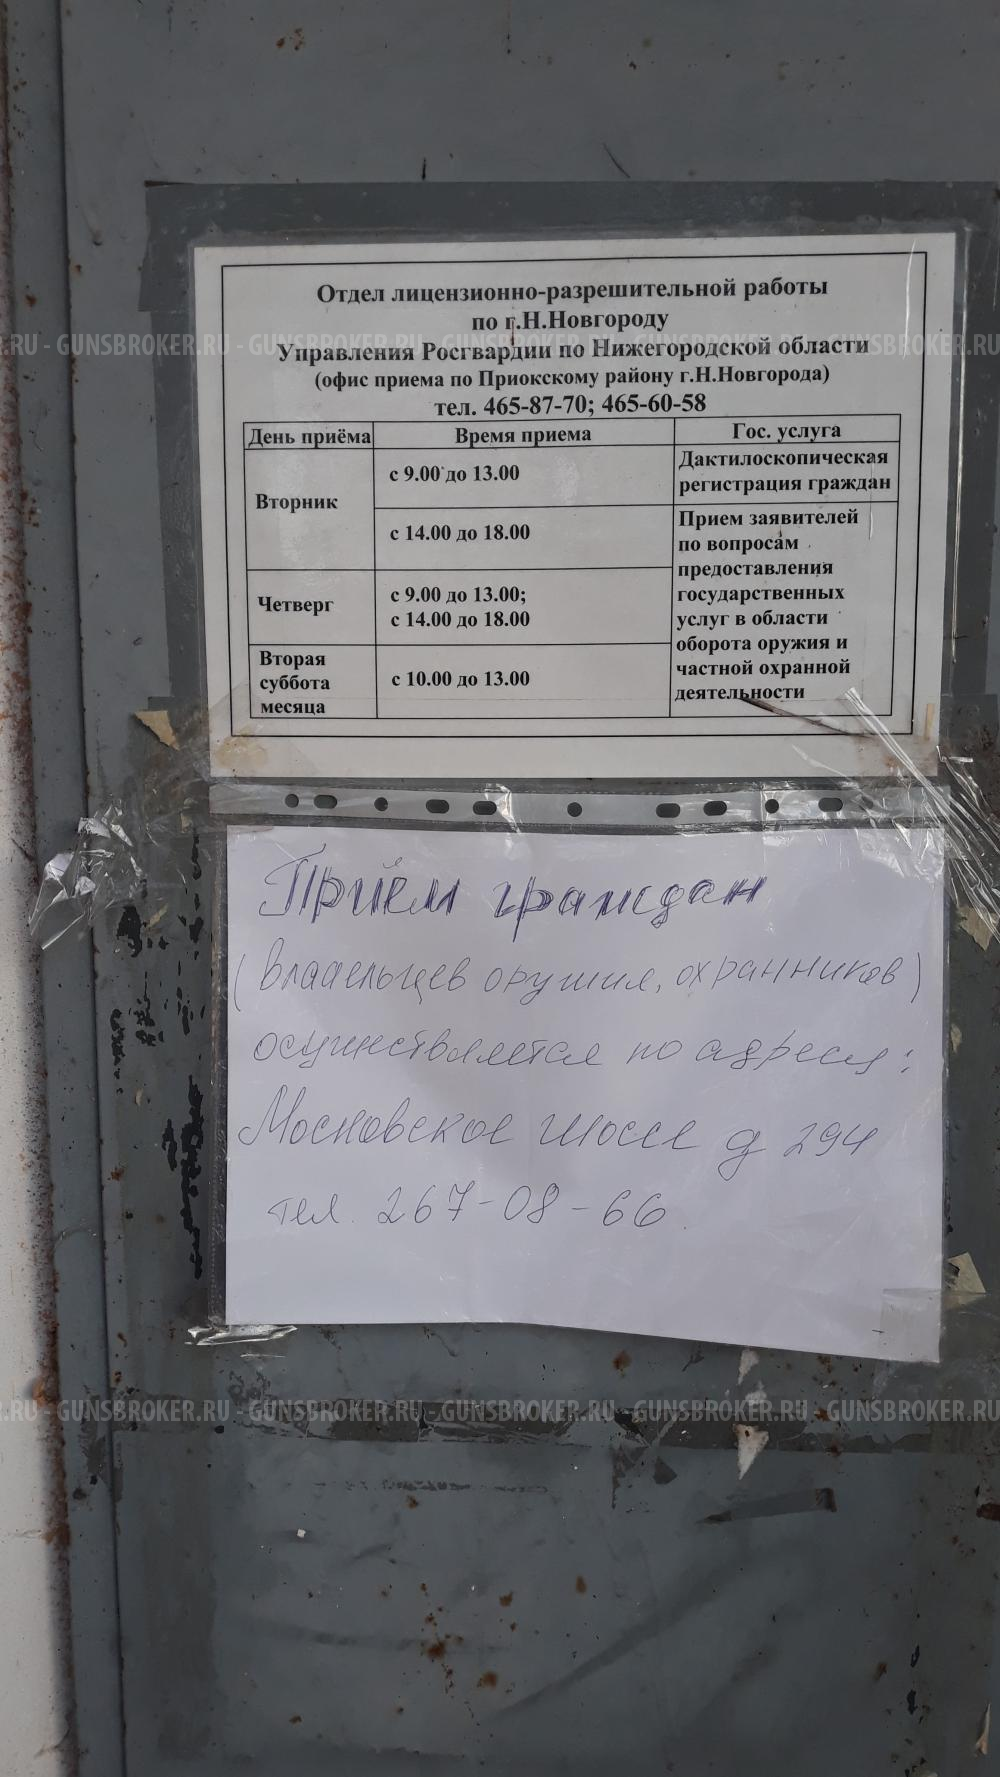 Отдел лицензионно-разрешительной работы
по г.Н.Новгороду
.RU - GUNSBROKER.RU - GUNSBROKER.RU - GUNSBROKER.RU - GUNSBROKER.RU - GUNSBROKER.RU
Управления Росгвардии по Нижегородской области
(офис приема по Приокскому району г.Н.Новгорода)
тел. 465-87-70; 465-60-58
День приёма Время приема Гос. услуга
Вторник
с 9.00 до 13.00
Дактилоскопическая
регистрация граждан
с 14.00 до 18.00
Четверг
с 9.00 до 13.00;
с 14.00 до 18.00
Вторая
суббота
месяца
с 10.00 до 13.00
Прием заявителей
по вопросам
предоставления
государственных
услуг в области
оборота оружия и
частной охранной
деятельности
Приём граждан
(владельцев оружия, охранников)
осуществляется по адресу:
Московское шоссе д 294
тел. 267-08-66
.RU - GUNSBROKER.RU - GUNSBROKER.RU - GUNSBROKER.RU - GUNSBROKER.RU - GUNSBROKER.RU